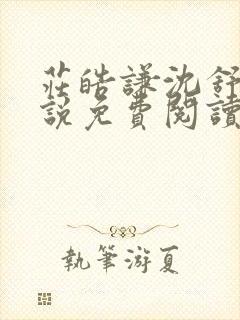 莊皓謙沈舒
說免費閱讀
執筆游夏